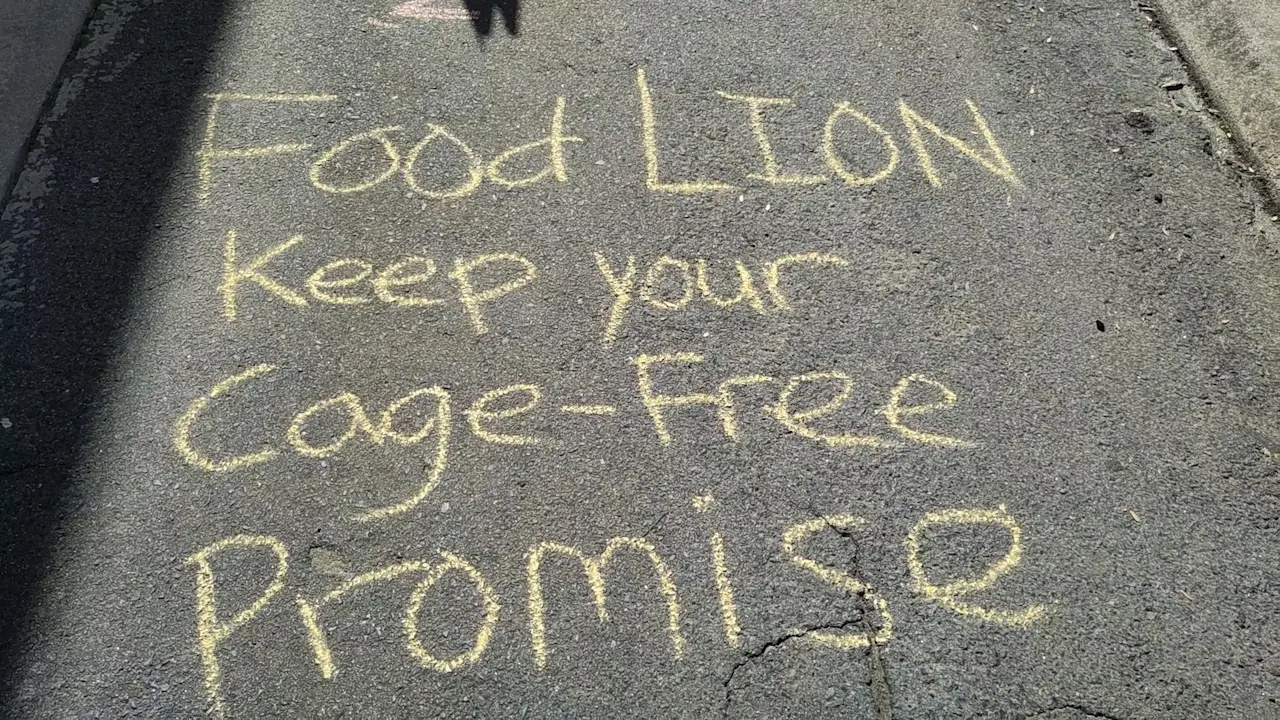 Food LION
Keep your
Cage-Free
Promise